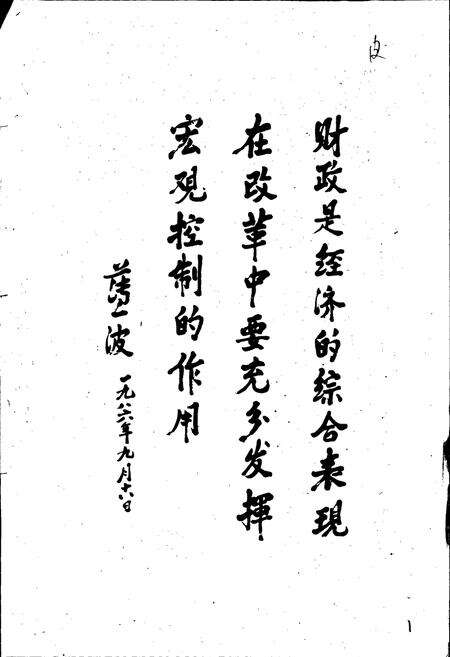 财政是经济的综合表現
在改革中要充分发揮
宏观控制的作用
薄一波
一九八六年九月十六日
1